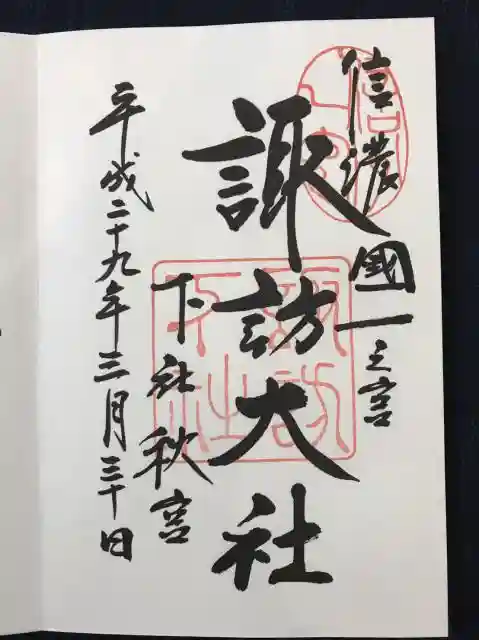 信濃國一之宮
諏訪大社
下社秋宮
平成二十九年三月三十日
諏訪
下社